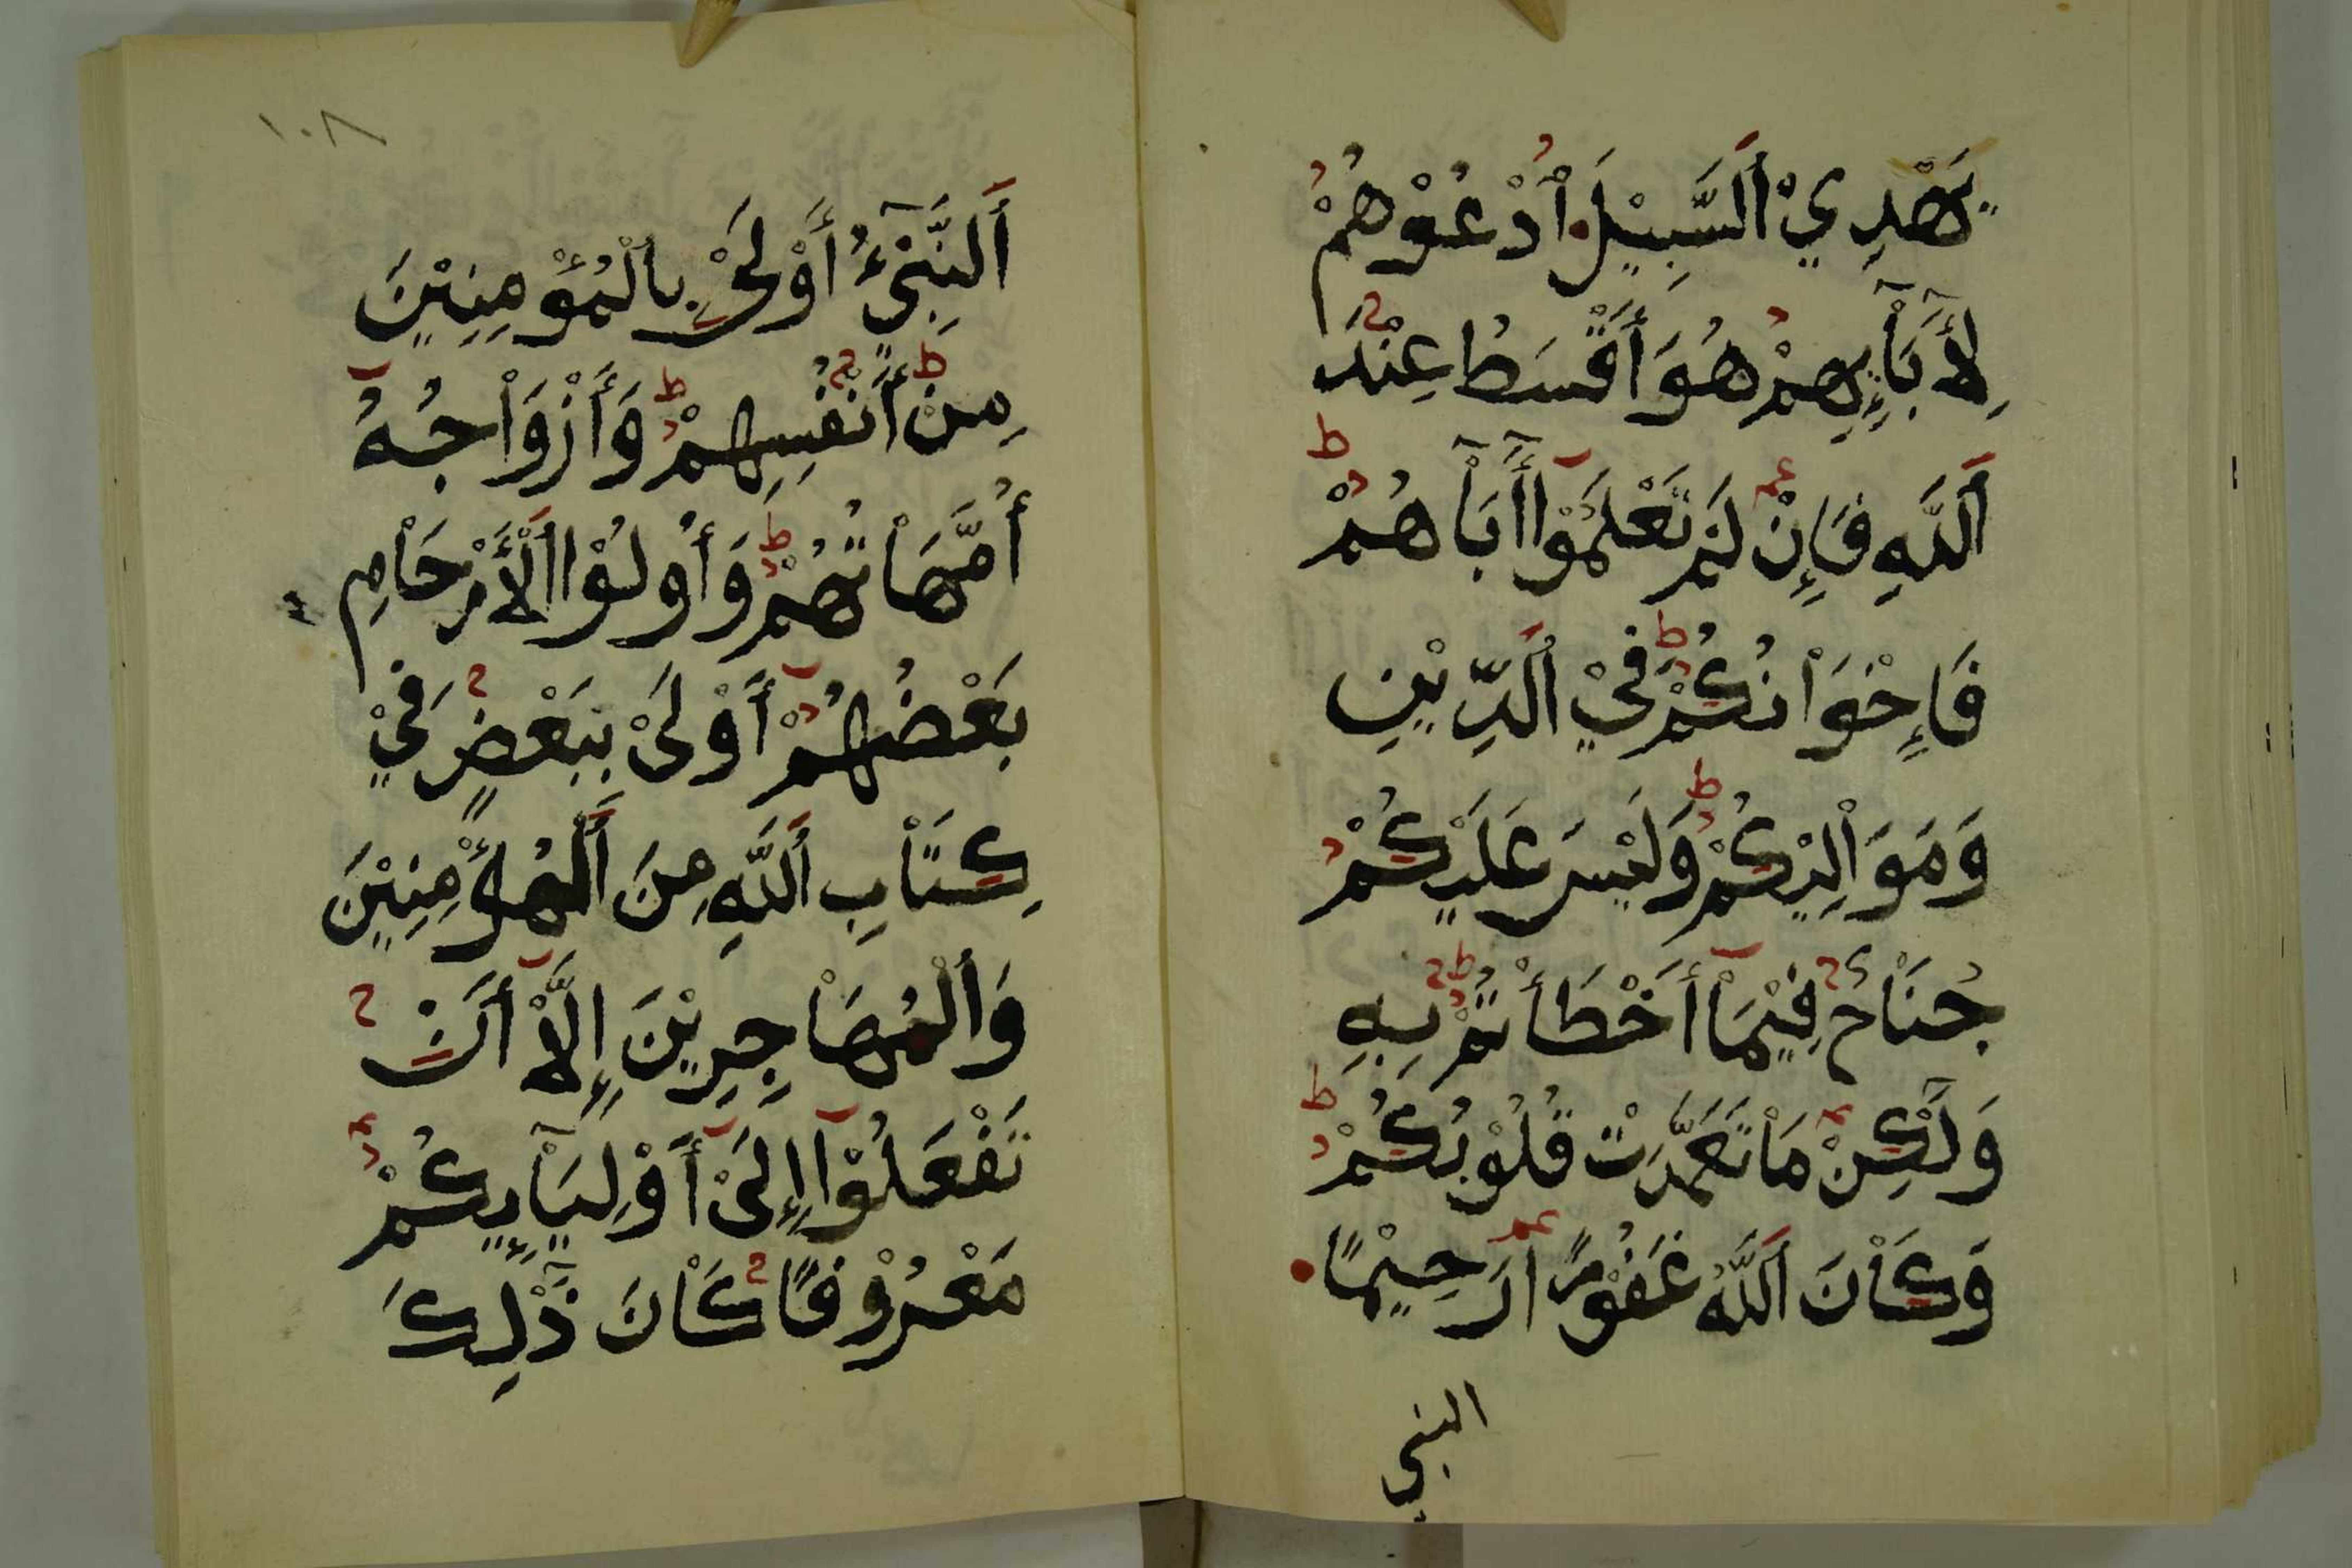 يَهْدِيْ اَلسَّبِيْلَ اُدْعُوْهُمْ
لِأَبَآئِهِمْ هُوَ أَقْسَطُ عِنْدَ
اَللَّهِ فَإِنْ لَمْ تَعْلَمُوْا أَبَآهُمْ
فَإِخْوَاْنُكُمْ فِيْ اَلدِّيْنِ
وَمَوَاْلِيْكُمْ وَلَيْسَ عَلَيْكُمْ
جُنَاْحٌ فِيْمَاْ أَخْطَأْتُمْ بِهِ
وَلَٰكِنْ مَاْ تَعَمَّدَتْ قُلُوْبُكُمْ
وَكَاْنَ اَللَّهُ غَفُوْرًا رَحِيْمًا
النبي
١٠٨
اَلنَّبِيْءُ أَوْلَىْ بِالْمُؤْمِنِيْنَ
مِنْ أَنْفُسِهِمْ وَأَزْوَاْجُهُ
أُمَّهَاْتُهُمْ وَأُولُوْا اَلْأَرْحَاْمِ
بَعْضُهُمْ أَوْلَىْ بِبَعْضٍ فِيْ
كِتَاْبِ اَللَّهِ مِنَ اَلْمُؤْمِنِيْنَ
وَاَلْمُهَاْجِرِيْنَ إِلَّاْ أَنْ
تَفْعَلُوْا إِلَىْ أَوْلِيَآئِكُمْ
مَعْرُوْفًا كَاْنَ ذَٰلِكَ